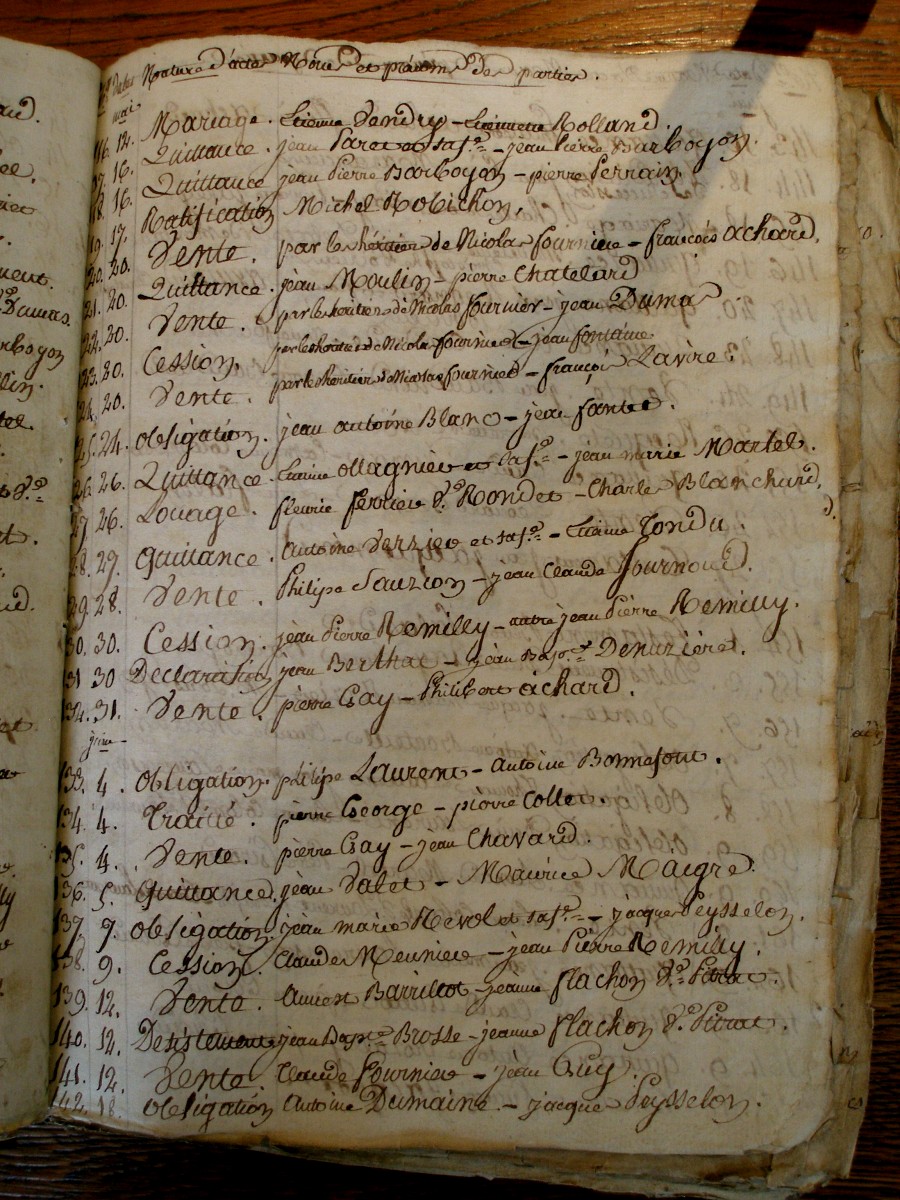 Nature d'actes Noms et prénoms des parties.
mai
12. Mariage. Etienne Vendry - Rolland.
16. Quittance. jean Paret et sa fe. - jean Pierre Barboyon.
16. Quittance jean Pierre Barboyon - pierre Perrain.
17. Ratification Michel Robichon,
20. Vente. par les héritiers de Nicolas fournier - françois achard,
21. 20. Quittance. jean Moulin - pierre Chatelard
22. 20. Vente. par les héritiers de Nicolas fournier - jean Dumas
23. 20. Cession, par les héritiers de Nicolas fournier - jean fontaine
24. 20. Vente. par les héritiers de Nicolas fournier - françois Lavire.
25. 24. obligation. jean antoine Blanc - jean
26. 26. Quittance. ollagnier et sa fe. - jean marie Martel.
27 26. Louage. fleurie ferrier ve. Rondet - Charles Blanchard,
28. 27. Quittance. antoine Verzier et sa fe. - Etienne Tondu.
29. 28. Vente. Philipe Sauzion - jean Claude fournoud.
30. 30. Cession. jean Pierre Remilly - autre jean Pierre Remilly.
31 30 Declaration jean Berthat - jean Bapte. Denuzière.
132. 31. Vente. pierre Gay - Philibert achard.
juin
133. 4. Obligation. philipe Laurent - antoine Bonnefont.
134. 4. Traité. pierre George - pierre Collet.
135. 4. Vente. pierre Gay - jean Chavard.
136. 5. Quittance. jean Valet - Maurice Maigre.
137. 7. obligation. jean marie Revol et sa fe. - jacque Peysselon.
138. 9. Cession. Claude Meunier - jean Pierre Remilly.
139. 12. Vente. Barrillot - jeanne flachon ve. Pitrat.
140. 12. Desistement jean Bapte. Brosse - jeanne flachon ve. Pitrat.
141. 12. Vente. Claude fournier - jean Guy.
142. 18. obligation antoine Dumaine. - jacque Peysselon.